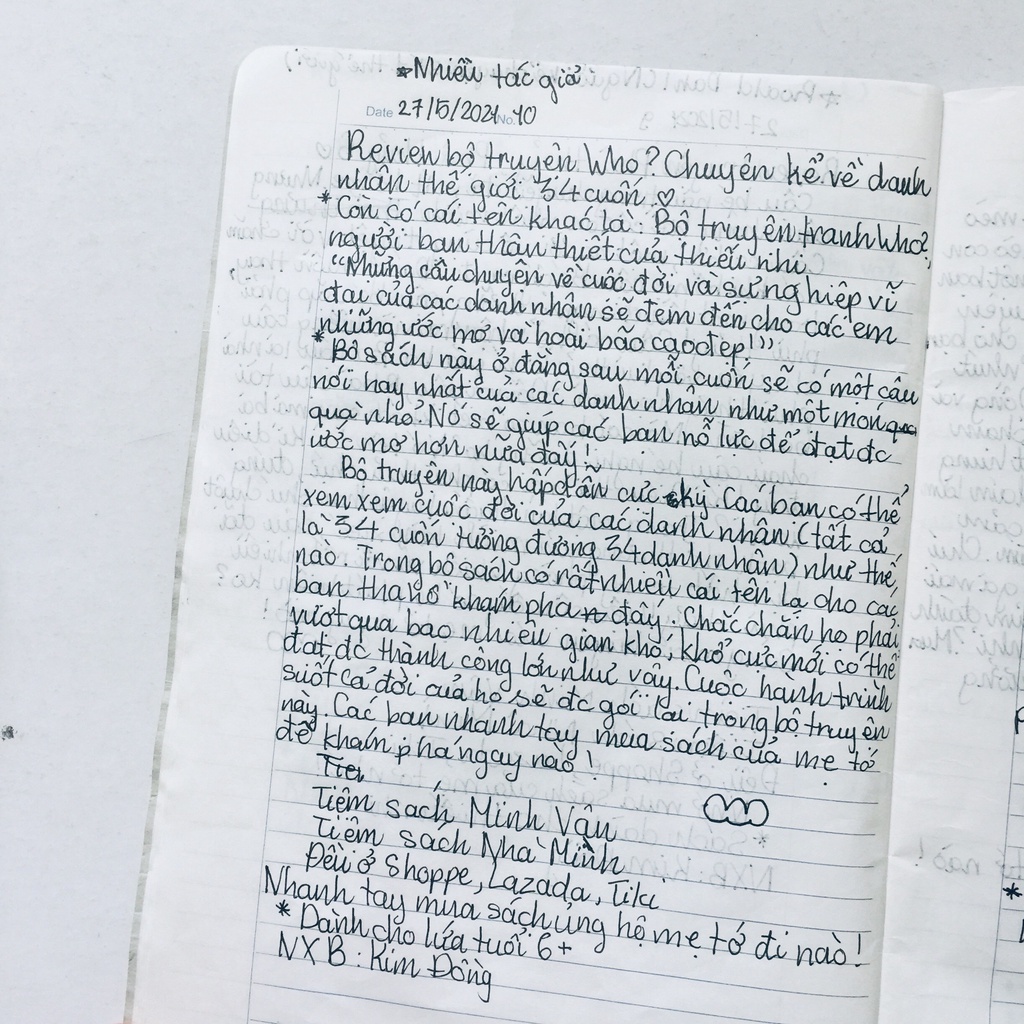 *Nhiều tác giả
Date 27/5/2021 No. 10
Review bộ truyện Who? Chuyện kể về danh
nhân thế giới 34 cuốn ♡
* Còn có cái tên khác là: Bộ truyện tranh Who?,
người bạn thân thiết của thiếu nhi
"Những câu chuyện về cuộc đời và sự nghiệp vĩ
đại của các danh nhân sẽ đem đến cho các em
những ước mơ và hoài bão cao đẹp!"
* Bộ sách này ở đằng sau mỗi cuốn sẽ có một câu
nói hay nhất của các danh nhân như một món quà
quà nhỏ. Nó sẽ giúp các bạn nỗ lực để đạt đc
ước mơ hơn nữa đấy!
Bộ truyện này hấp dẫn cực kỳ. Các bạn có thể
xem xem cuộc đời của các danh nhân (tất cả
là 34 cuốn tương đương 34 danh nhân) như thế
nào. Trong bộ sách có rất nhiều cái tên lạ cho các
bạn tha hồ khám phá đấy. Chắc chắn họ phải
vượt qua bao nhiêu gian khó, khổ cực mới có thể
đạt đc thành công lớn như vậy. Cuộc hành trình
suốt cả đời của họ sẽ đc gói lại trong bộ truyện
này. Các bạn nhanh tay mua sách của mẹ tớ
để khám phá ngay nào!
Tiệm sách Minh Vân
Tiệm sách Nhà Mình
Đều ở Shoppe, Lazada, Tiki
Nhanh tay mua sách ủng hộ mẹ tớ đi nào!
* Dành cho lứa tuổi 6+
NXB: Kim Đồng